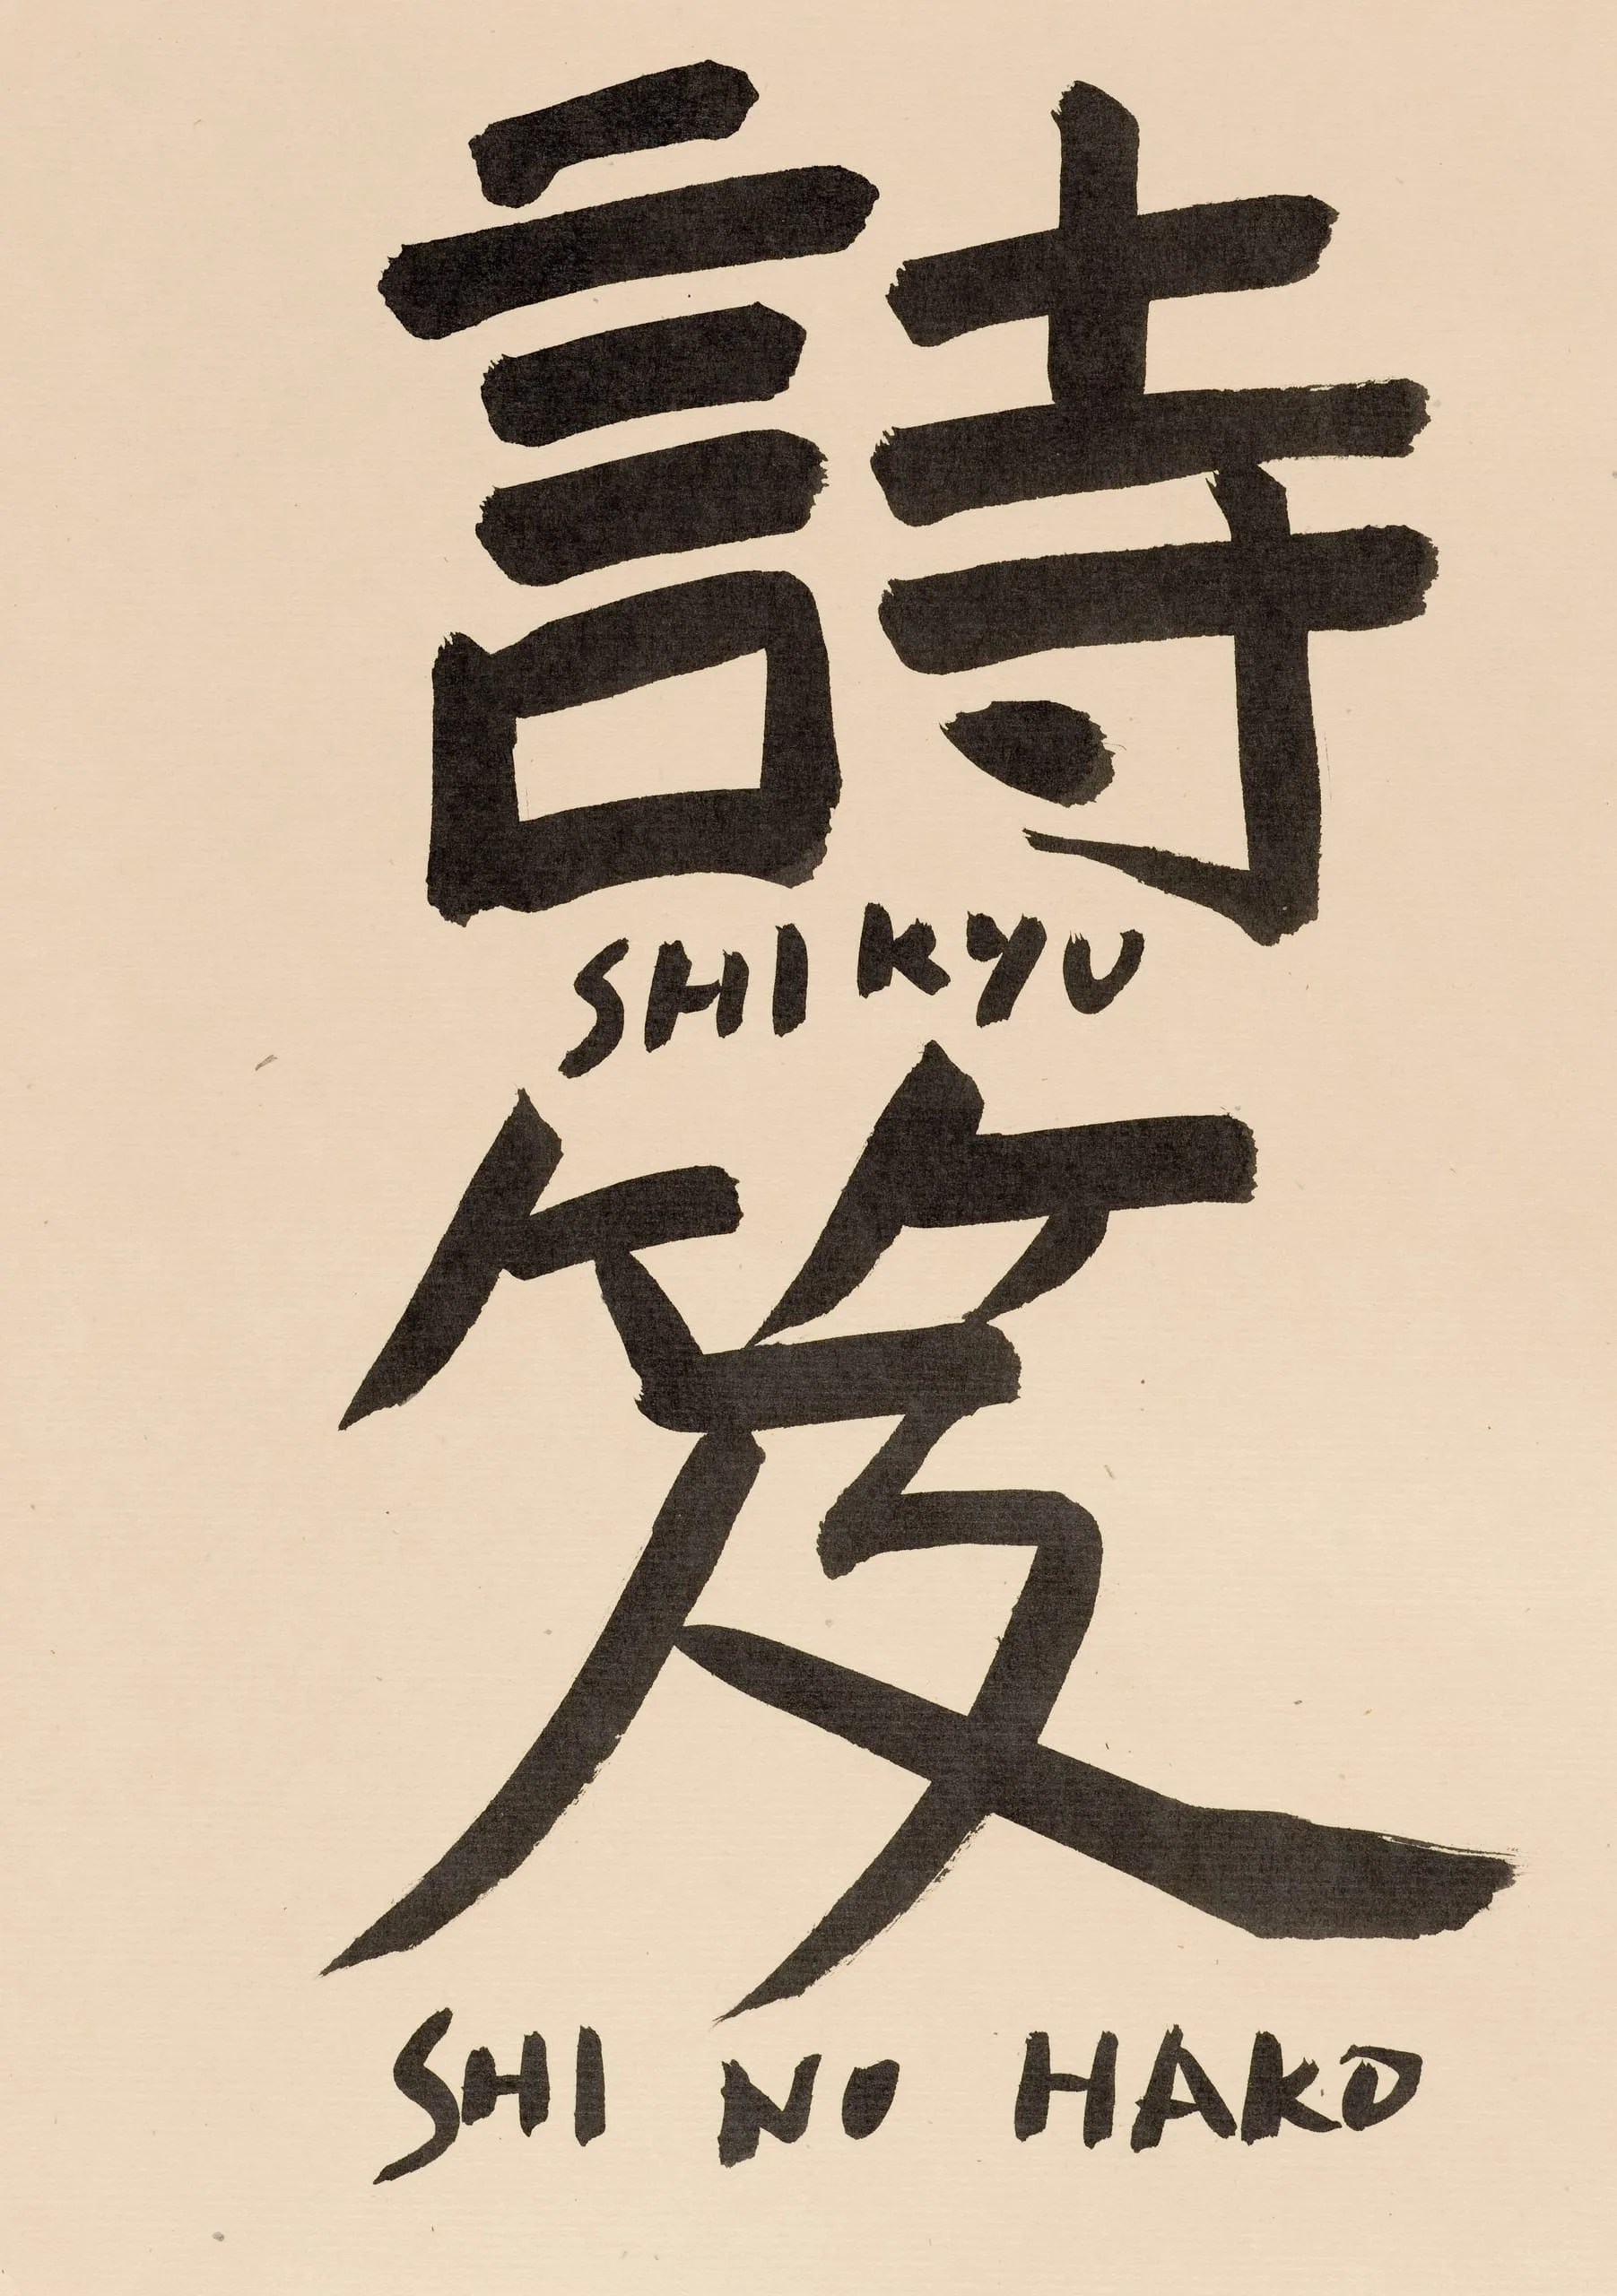 詩
SHIKYU
笈
SHI NO HAKO